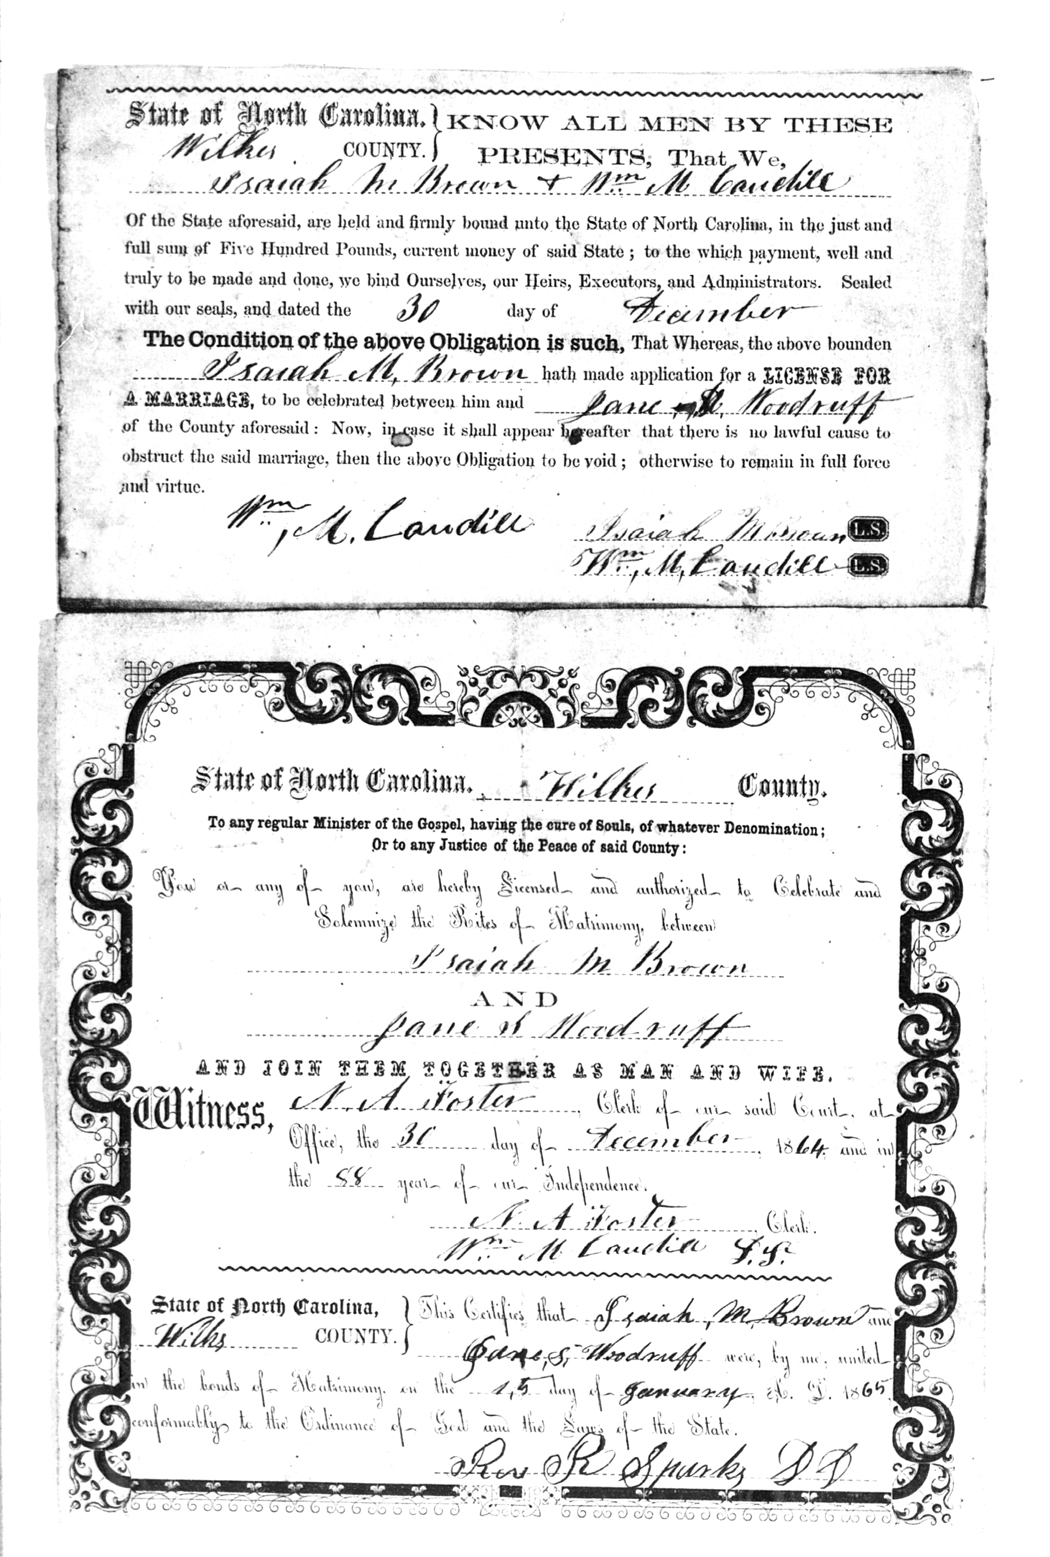 State of North Carolina, } KNOW ALL MEN BY THESE
Wilkes COUNTY. } PRESENTS, That We,
Isaiah M Brown + Wm M Caudill
Of the State aforesaid, are held and firmly bound unto the State of North Carolina, in the just and
full sum of Five Hundred Pounds, current money of said State ; to the which payment, well and
truly to be made and done, we bind Ourselves, our Heirs, Executors, and Administrators. Sealed
with our seals, and dated the 30 day of December
The Condition of the above Obligation is such, That Whereas, the above bounden
Isaiah M, Brown hath made application for a LICENSE FOR
A MARRIAGE, to be celebrated between him and Jane S, Woodruff
of the County aforesaid : Now, in case it shall appear hereafter that there is no lawful cause to
obstruct the said marriage, then the above Obligation to be void ; otherwise to remain in full force
and virtue.
Wm, M. Caudill Isaiah M Brown L.S.
Wm, M, Caudill L.S.
State of North Carolina, Wilkes County.
To any regular Minister of the Gospel, having the cure of Souls, of whatever Denomination;
Or to any Justice of the Peace of said County:
You or any of you, are hereby Licensed and authorized to Celebrate and
Solemnize the Rites of Matrimony, between
Isaiah M Brown
AND
Jane S Woodruff
AND JOIN THEM TOGETHER AS MAN AND WIFE.
Witness, N. A Foster, Clerk of our said Court, at
Office, the 30 day of December, 1864 and in
the 88 year of our Independence.
N A Foster, Clerk.
Wm M Caudill
State of North Carolina, } This Certifies that Isaiah, M, Brown and
Wilks COUNTY. } Jane, S, Woodruff were, by me, united
in the bonds of Matrimony, on the 15 day of January A. D. 1865
conformably to the Ordinance of God and the Laws of the State.
Rev R Sparks D D